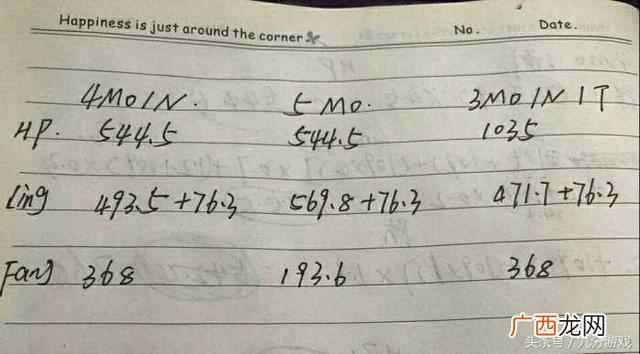 Happiness is just around the corner
No. Date.
4MOIN. 5 MO. 3MOIN 1T
HP. 544.5 544.5 1035
Ling 493.5+76.3 569.8+76.3 471.7+76.3
Fang 368 193.6 368
广西龙网
头条号/九分游戏